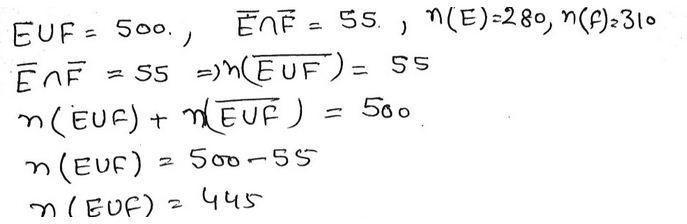 EUF = 500. , E̅∩F̅ = 55. , n(E)=280, n(f)=310
E̅∩F̅ = 55 => n(E̅U̅F̅) = 55
n(EUF) + n(E̅U̅F̅) = 500
n(EUF) = 500-55
n(EUF) = 445